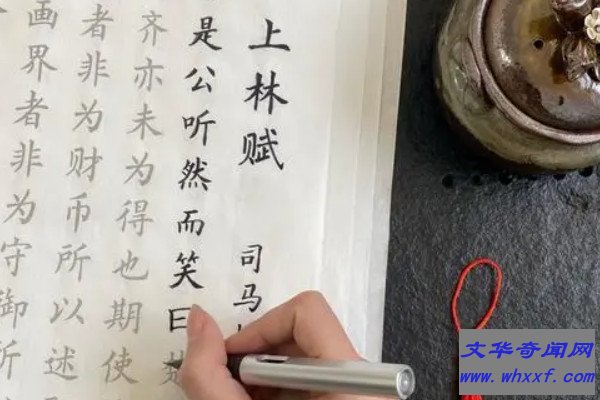 上林赋 司马
是公听然而笑曰
齐亦未为得也期使
者非为财币所以述
画界者非为守御所
文华奇闻网
www.whxxf.com